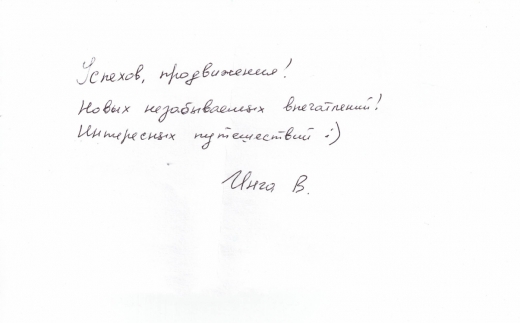 Успехов, продвижения!
Новых незабываемых впечатлений!
Интересных путешествий :)
Инга В.